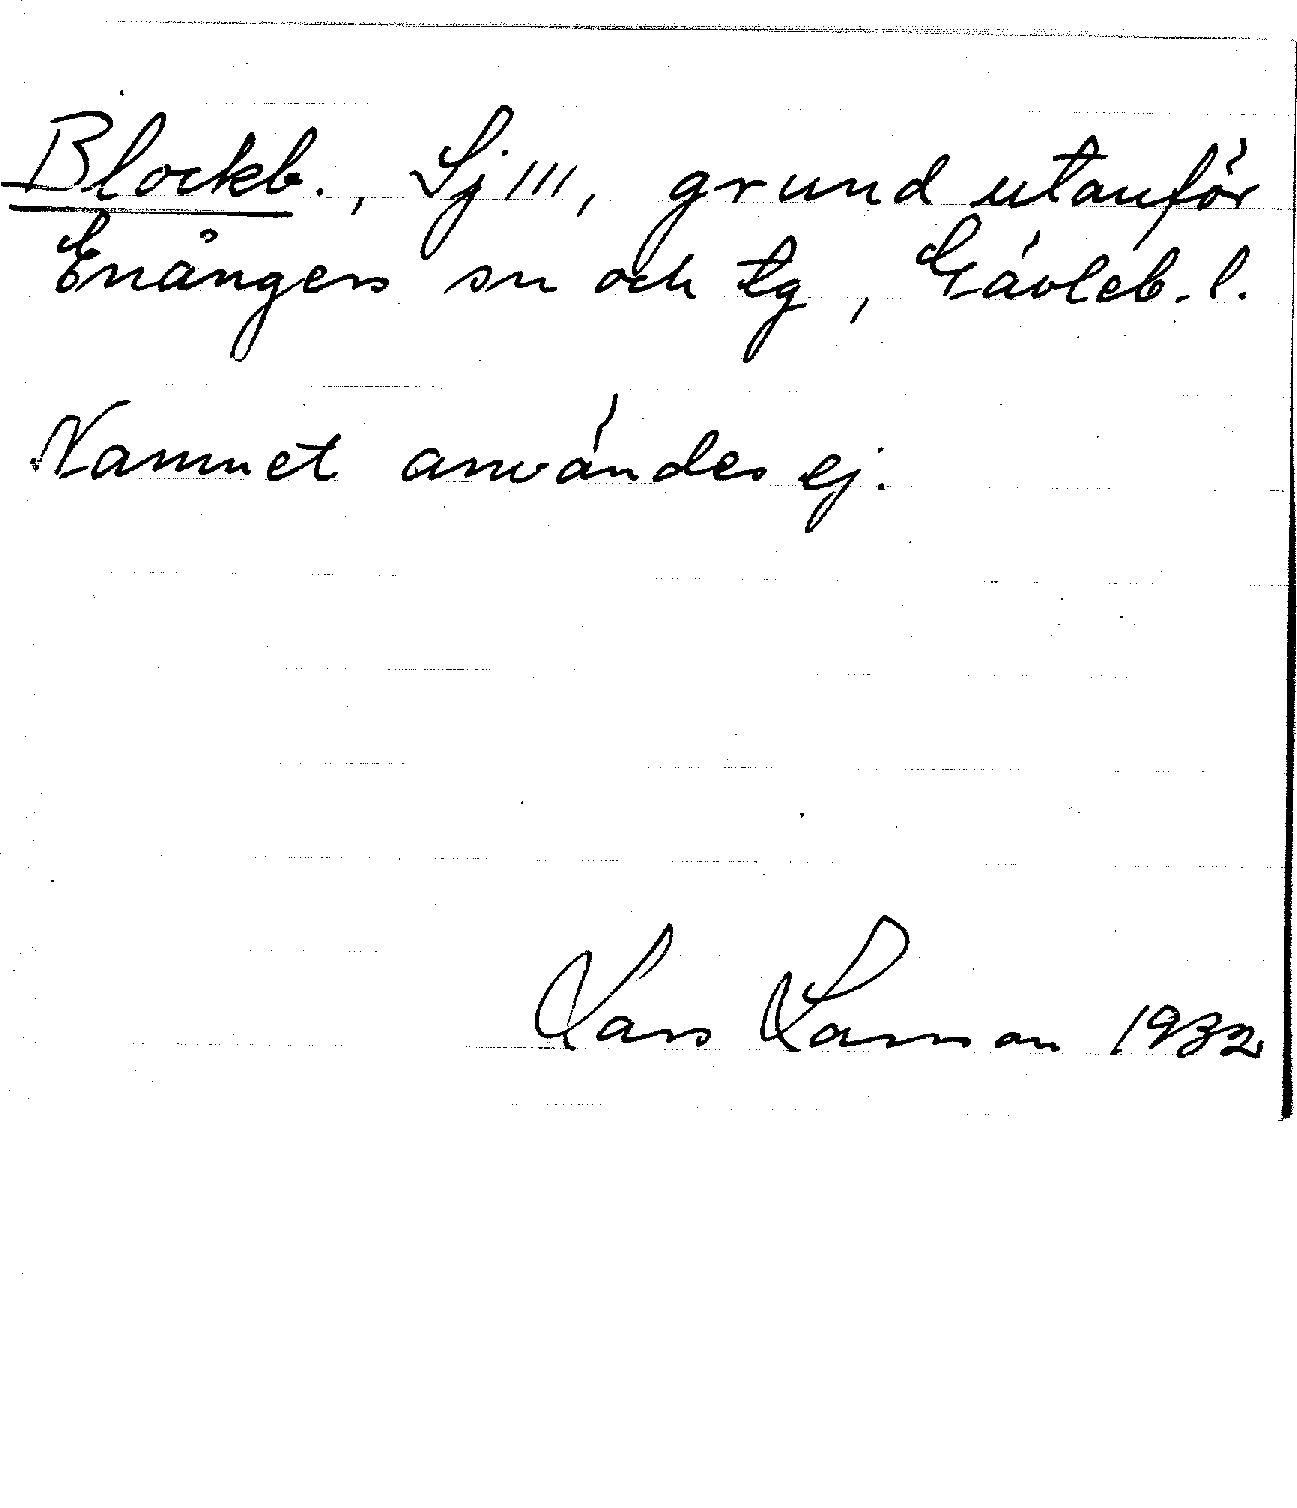 Blockb., Sj III, grund utanför
Enångers sn och tg, Gävleb. l.
Namnet användes ej.
Lars Larsson 1932